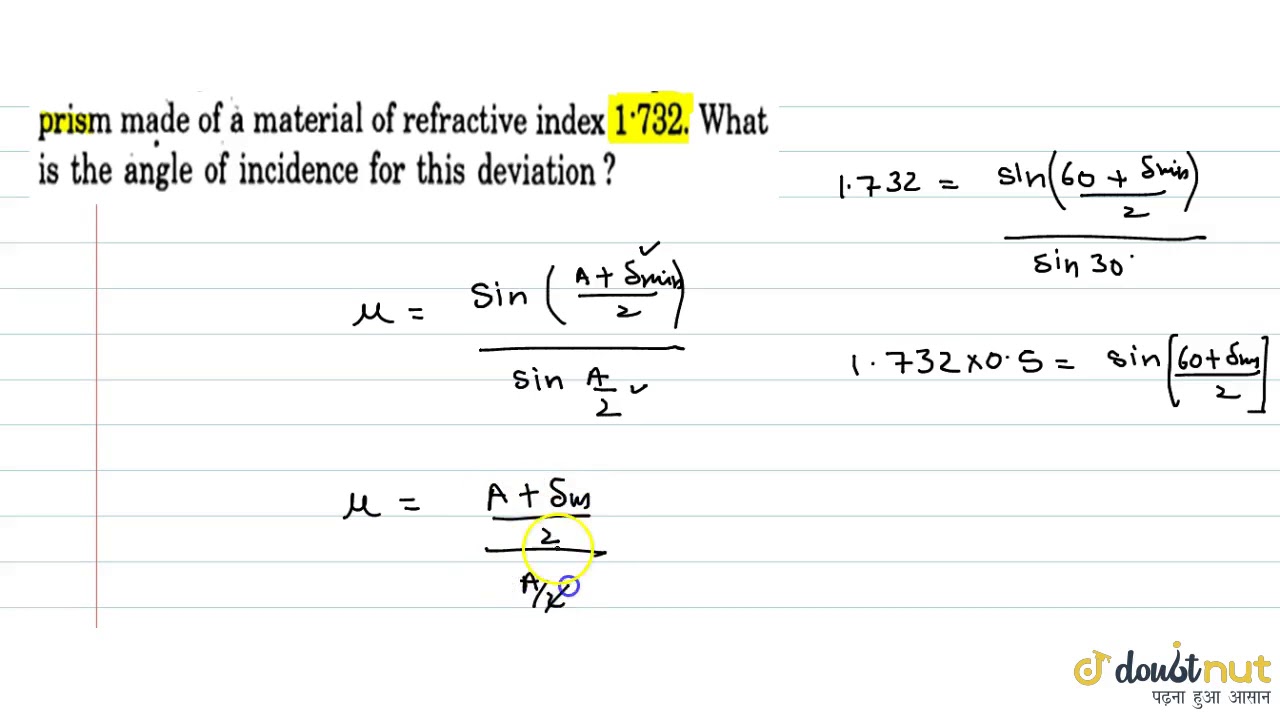 prism made of a material of refractive index 1·732. What
is the angle of incidence for this deviation ?
1.732 = sin(60 + δmin / 2) / sin 30°
μ = Sin (A + δmin / 2) / sin A/2
1.732 x 0.5 = sin [60 + δm / 2]
μ = A + δm / 2 / A/2
doubtnut
पढ़ना हुआ आसान